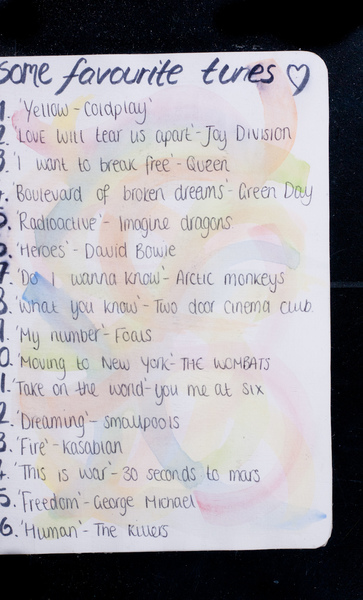 some favourite tunes ♡
1. 'Yellow - Coldplay'
2. 'Love will tear us apart' - Joy Division
3. 'I want to break free' - Queen
4. 'Boulevard of broken dreams' - Green Day
5. 'Radioactive' - Imagine dragons
6. 'Heroes' - David Bowie
7. 'Do I wanna know' - Arctic monkeys
8. 'What you know' - Two door cinema club.
9. 'My number' - Foals
0. 'Moving to New York' - THE WOMBATS
1. 'Take on the world - you me at six
2. 'Dreaming' - smallpools
3. 'Fire' - Kasabian
4. 'This is war' - 30 seconds to mars
5. 'Freedom' - George Michael
6. 'Human' - The Killers